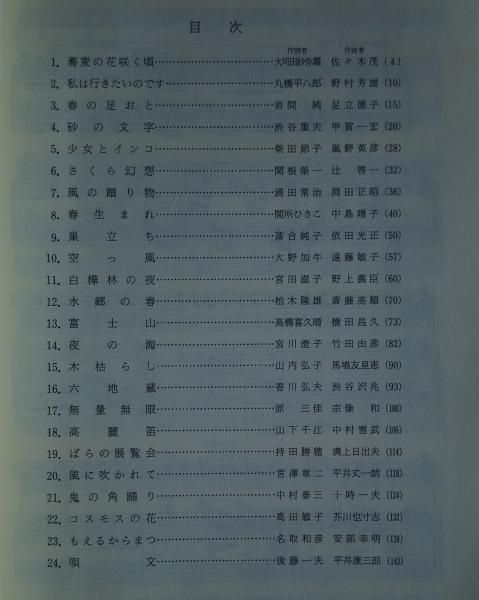 目 次
作詩者 作曲者
1. 蕎麦の花咲く頃……………大河田紗弥靄 佐々木茂 (4)
2. 私は行きたいのです……………丸橋平八郎 野村芳雄 (10)
3. 春の足おと……………岩間 純 足立徳子 (15)
4. 砂の文字……………渋谷重夫 甲賀一宏 (20)
5. 少女とインコ……………柴田節子 嵐野英彦 (28)
6. さくら幻想……………関根榮一 辻 啓一 (32)
7. 風の贈り物……………浦田常治 岡田正昭 (36)
8. 春生まれ……………間所ひさこ 中島晴子 (40)
9. 巣立ち……………落合純子 依田光正 (50)
10. 空っ風……………大野加牛 遠藤敏子 (57)
11. 白樺林の夜……………宮田滋子 野上義臣 (60)
12. 水郷の春……………柏木隆雄 斎藤高順 (70)
13. 富士山……………高橋喜久晴 横田昌久 (73)
14. 夜の海……………宮川澄子 竹田由彦 (82)
15. 木枯らし……………山内弘子 馬場友里恵 (90)
16. 六地蔵……………香川弘夫 渋谷沢兆 (93)
17. 無量無限……………原 三佳 宗像 和 (100)
18. 高麗笛……………山下千江 中村雪武 (106)
19. ばらの展覧会……………持田勝穂 溝上日出夫 (114)
20. 風に吹かれて……………宮澤章二 平井丈一朗 (118)
21. 鬼の角踊り……………中村泰三 十時一夫 (124)
22. コスモスの花……………高田敏子 芥川也寸志 (132)
23. もえるからまつ……………名取和彦 安部幸明 (138)
24. 唄文……………後藤一夫 平井康三郎 (143)